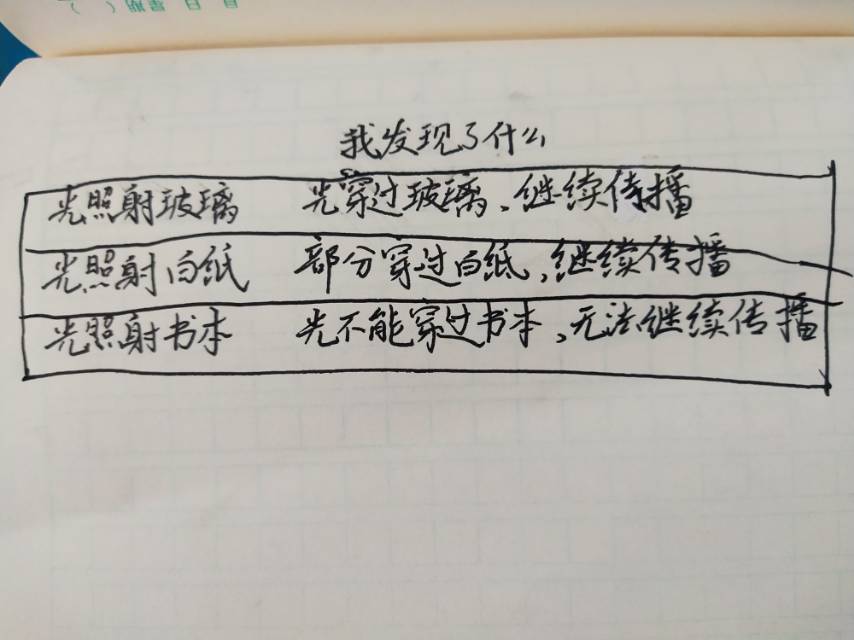 我发现了什么
光照射玻璃 光穿过玻璃、继续传播
光照射白纸 部分穿过白纸，继续传播
光照射书本 光不能穿过书本，无法继续传播